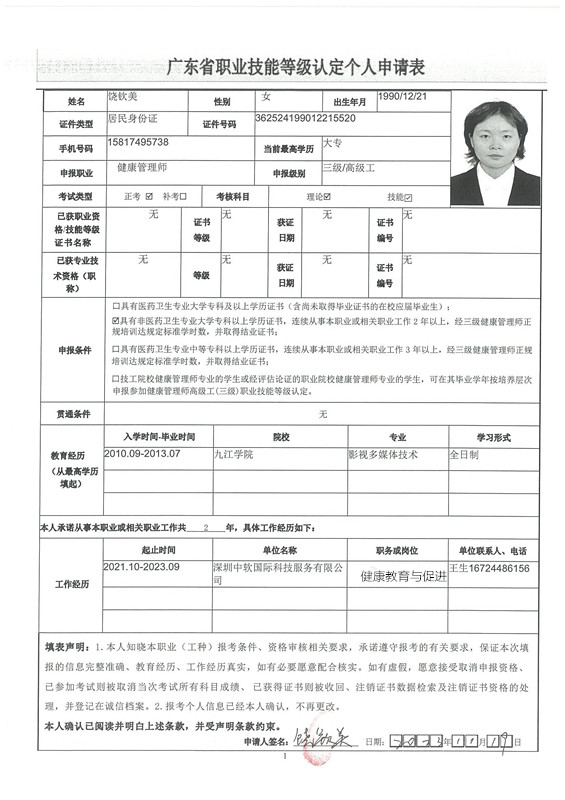 广东省职业技能等级认定个人申请表
姓名 饶钦美 性别 女 出生年月 1990/12/21
证件类型 居民身份证 证件号码 362524199012215520
手机号码 15817495738 当前最高学历 大专
申报职业 健康管理师 申报级别 三级/高级工
考试类型 正考 ☑ 补考☐ 考核科目 理论☑ 技能☑
已获职业资格/技能等级证书名称 无 证书等级 无 获证日期 无 证书编号 无
已获专业技术资格（职称） 无 等级 无 获证日期 无 证书编号 无
申报条件
☐具有医药卫生专业大学专科及以上学历证书（含尚未取得毕业证书的在校应届毕业生）；
☑具有非医药卫生专业大学专科以上学历证书，连续从事本职业或相关职业工作 2 年以上，经三级健康管理师正
规培训达规定标准学时数，并取得结业证书；
☐具有医药卫生专业中等专科以上学历证书，连续从事本职业或相关职业工作 3 年以上，经三级健康管理师正规
培训达规定标准学时数，并取得结业证书；
☐技工院校健康管理师专业的学生或经评估论证的职业院校健康管理师专业的学生，可在其毕业学年按培养层次
申报参加健康管理师高级工(三级)职业技能等级认定。
贯通条件 无
教育经历（从最高学历填起）
入学时间-毕业时间 院校 专业 学习形式
2010.09-2013.07 九江学院 影视多媒体技术 全日制
本人承诺从事本职业或相关职业工作共 2 年，具体工作经历如下：
工作经历
起止时间 单位名称 职务或岗位 单位联系人、电话
2021.10-2023.09 深圳中软国际科技服务有限公司 健康教育与促进 王生16724486156
填表声明：1.本人知晓本职业（工种）报考条件、资格审核相关要求，承诺遵守报考的有关要求，保证本次填
报的信息完整准确、教育经历、工作经历真实，如有必要愿意配合核实。如有虚假，愿意接受取消申报资格、
已参加考试则被取消当次考试所有科目成绩、已获得证书则被收回、注销证书数据检索及注销证书资格的处
理，并登记在诚信档案。2.报考个人信息已经本人确认，不再更改。
本人确认已阅读并明白上述条款，并受声明条款约束。
申请人签名：饶钦美 日期：2023年11月19日
1